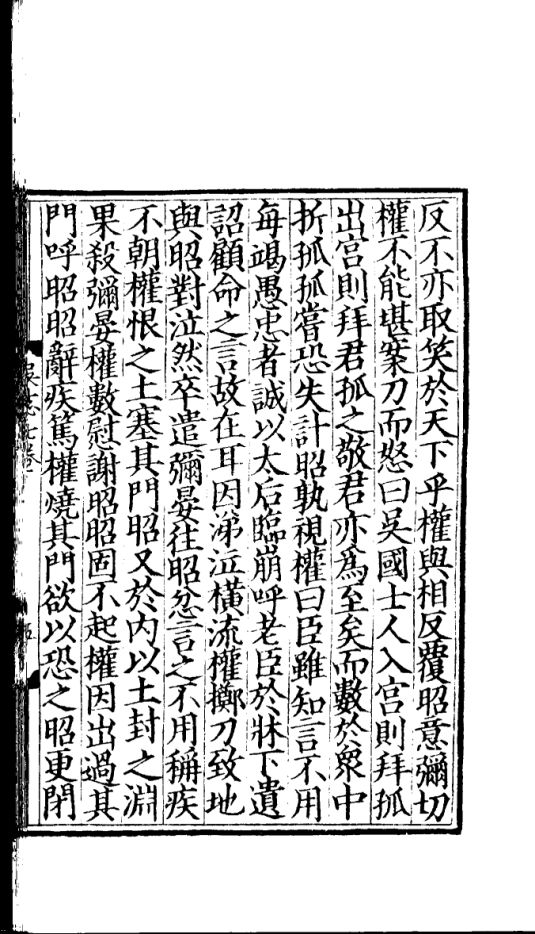 反不亦取笑於天下乎權與相反覆昭意彌切
權不能堪案刀而怒曰吳國士人入宮則拜孤
出宮則拜君孤之敬君亦為至矣而數於衆中
折孤孤嘗恐失計昭孰視權曰臣雖知言不用
每竭愚忠者誠以太后臨崩呼老臣於牀下遺
詔顧命之言故在耳因涕泣橫流權擲刀致地
與昭對泣然卒遣彌晏往昭忿言之不用稱疾
不朝權恨之土塞其門昭又於內以土封之淵
果殺彌晏權數慰謝昭昭固不起權因出過其
門呼昭昭辭疾篤權燒其門欲以恐之昭更閉